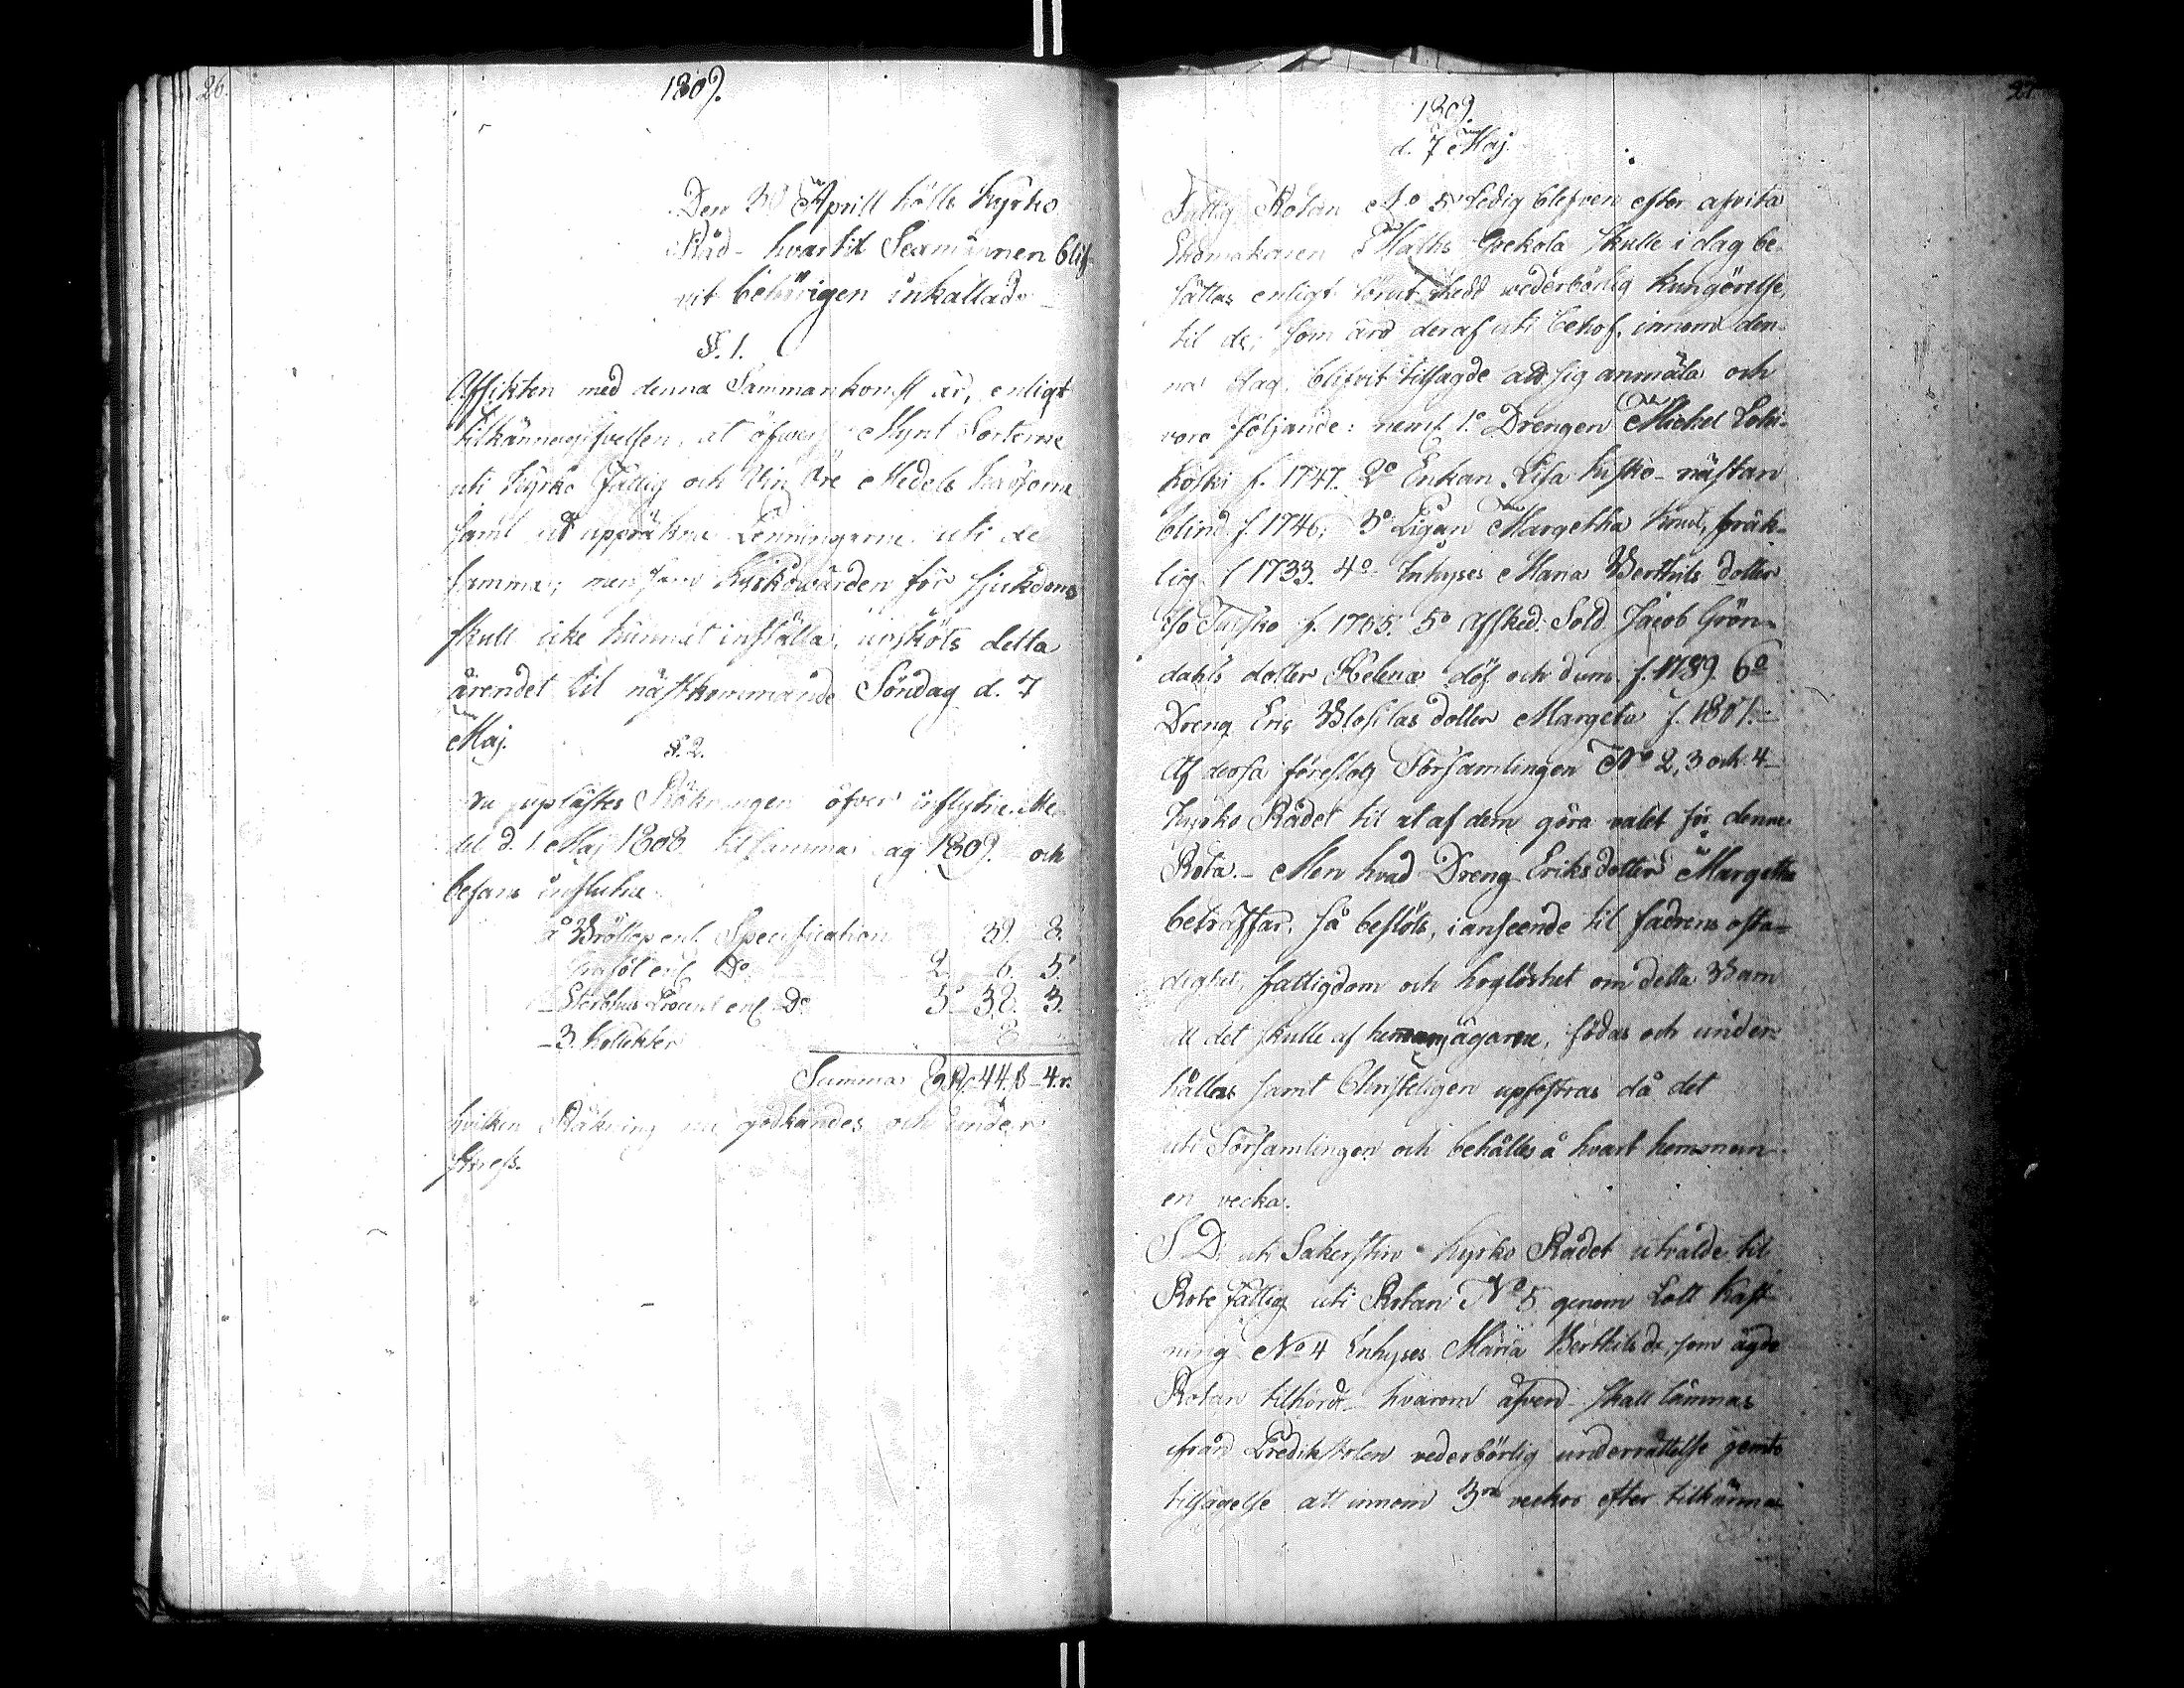 26.
1809.
Den 30 Aprill hölls Kyrko
Råd - hvartil Sexmännen blif-
vit behörigen inkallade
§. 1.
Afsikten med denna Sammankomst är, enligt
tilkännagifvelsen, at öfwerse Mynt Sorterne
uti Kyrko Fattig och Medels
samt at uppräkna Lemningarne uti de
samma; men som Kyrkowärden för sjukdoms
skull icke kunnat inställa, upsköts detta
ärendet til nästkommande Söndag d. 7
Maj.
§. 2.
uplästes Räkningen öfver influtne Me-
del d. 1. Maj 1808 til samma dag 1809. och
befans influtne
å Bröllop enl. Specification 39. 8.
enl. Do 2. 6. 5
Sterbhus Procent enl. Do 5 - 38. 3.
- 3. Kollekter 8
Summa 44. ß - 4. r.
hvilken Räkning nu godkändes och under
skrefs.
27.
1809.
d. 7 Maj.
Fattig Rotan No 5 ledig blefven efter afvita
Skomakaren Maths Grekola skulle i dag be-
sättas enligt förut skedd wederbörlig kungörelse,
til de, som äro deraf uti behof, innom den-
na dag blifvit tilsagde at sig anmäla och
voro följande: neml. 1o Drengen Michel
koski f. 1747. 2o Enkan Lisa - nästan
blind f. 1746; 3o Pigan Margetha
lig f 1733. 4o Inhyses Maria Berthils dotter
f. 1765. 5o Afsked. Sold. Jacob Grön-
dahls dotter Helena döf och dum f. 1789. 6o
Dreng Eric dotter Margeta f. 1807.
Af dessa föreslog Församlingen No 2, 3 och 4
Kyrko Rådet til at af dem göra valet för denna
Rota. - Men hvad Dreng Eriks dotter Margetha
beträffar, så beslöts, i anseende til fadrens osta-
dighet, fattigdom och hoglöshet om detta Barn
at det skulle af hemmans ägarne, födas och under-
hållas samt Christeligen upfostras då det
uti Församlingen och behålles å hvart hemman
en vecka.
S. D. uti Sakerstian Kyrko Rådet utvalde til
Rote fattig uti Rotan No 5 genom Lott kast-
ning No 4 Inhyses Maria Berthils dr, som ägde
Rotan tilhörd - hvarom äfven skall lämnas
ifrån Predikstolen vederbörlig underrättelse jemte
tilsägelse att innom 3ne veckor efter tilkänna-